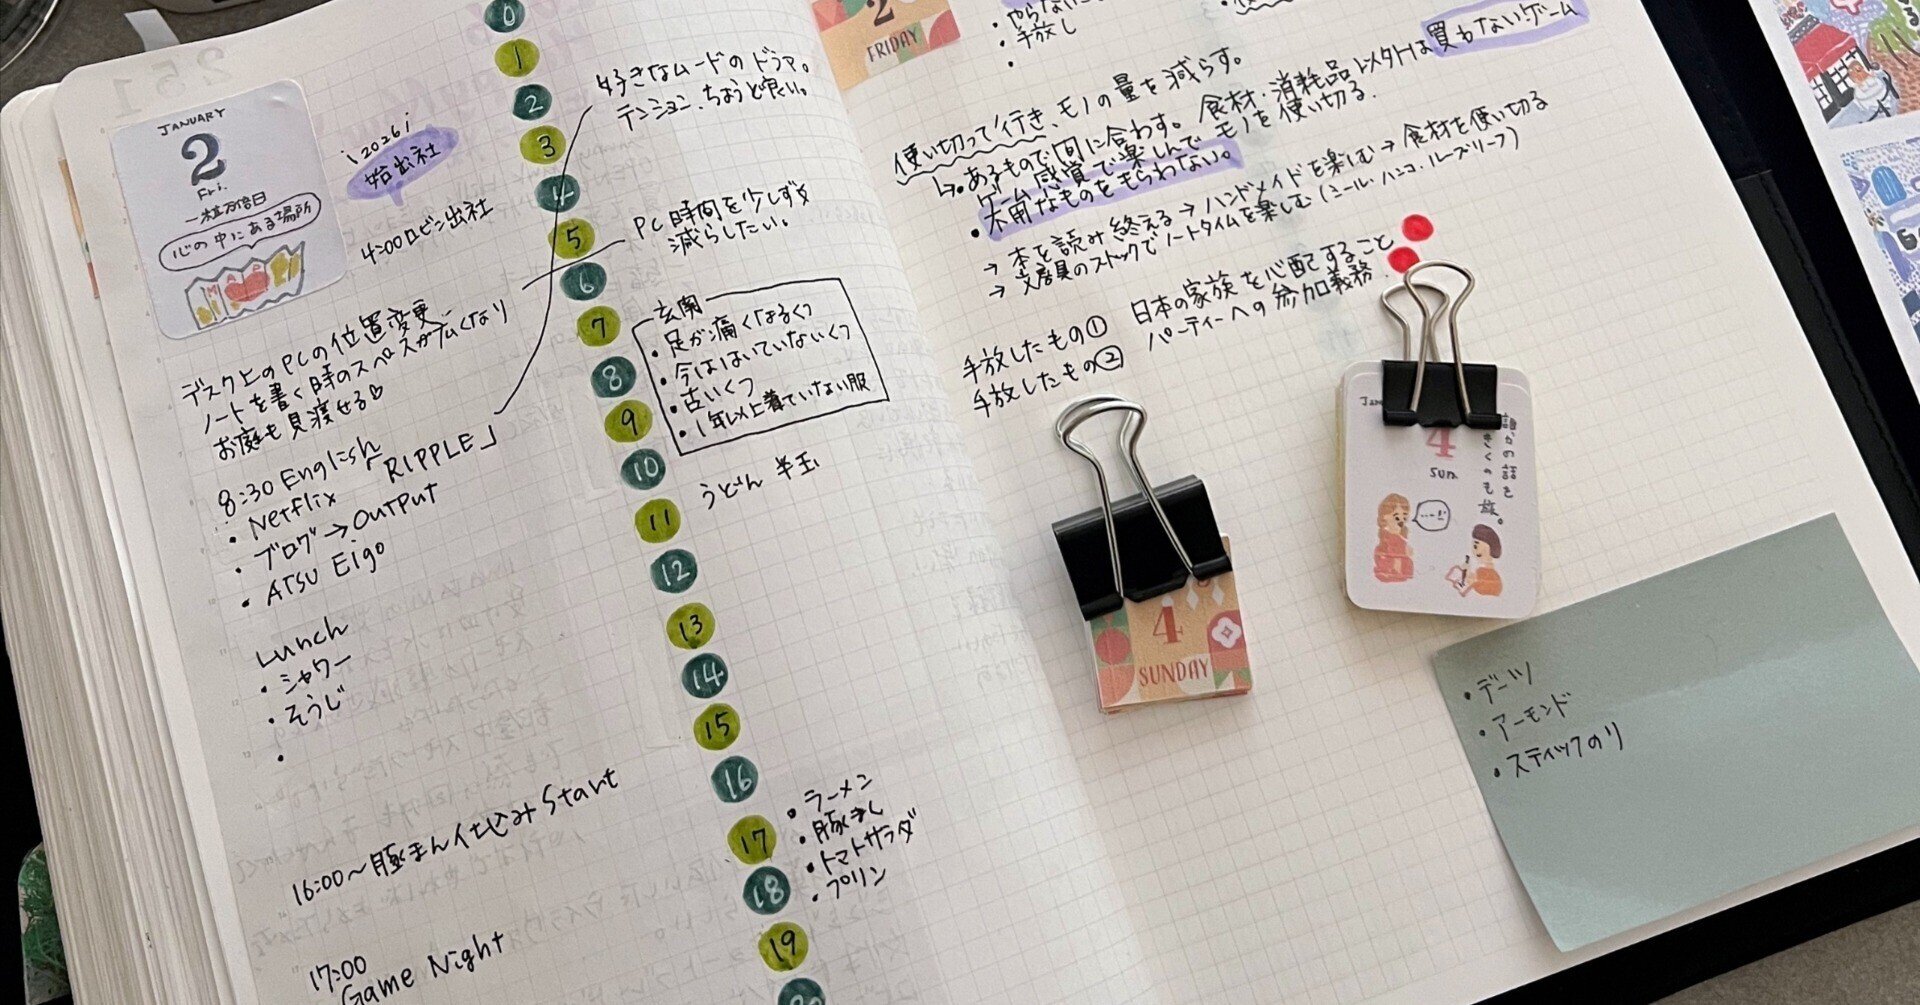 JANUARY
2
Fri.
一粒万倍日
心の中にある場所
MAP
2026
始出社
4:00ロビン出社
デスク上のPCの位置変更
ノートを書く時のスペースが広くなり
お庭も見渡せる♡
8:30 English
・Netflix 「RIPPLE」
・ブログ→Output
・ATSU Eigo
Lunch
・シャワー
・そうじ
・
16:00〜豚まん仕込みStart
17:00
Game Night
0
1
2
3
4
5
6
7
8
9
10
11
12
13
14
15
16
17
18
19
20
好きなムードのドラマ。
テンションちょうど良い。
PC時間を少しずつ
減らしたい。
玄関
・足が痛くなるくつ
・今ははいていないくつ
・古いくつ
・1年以上着ていない服
うどん 半玉
・ラーメン
・豚まん
・トマトサラダ
・プリン
2
FRIDAY
・手放し
・
使い切って行き、モノの量を減らす。
↳・あるもので間に合わす。食材・消耗品以外は買わないゲーム
ゲーム感覚で楽しんでモノを使い切る。
・不用なものをもらわない。
→ 本を読み終える→ハンドメイドを楽しむ→食材を使い切る
→ 文房具のストックでノートタイムを楽しむ(シール、ハンコ、ルーズリーフ)
手放したもの① 日本の家族を心配すること
手放したもの② パーティーへの参加義務
4
SUNDAY
4
Sun.
誰かの話を
きくのも旅。
・デーツ
・アーモンド
・スティックのり